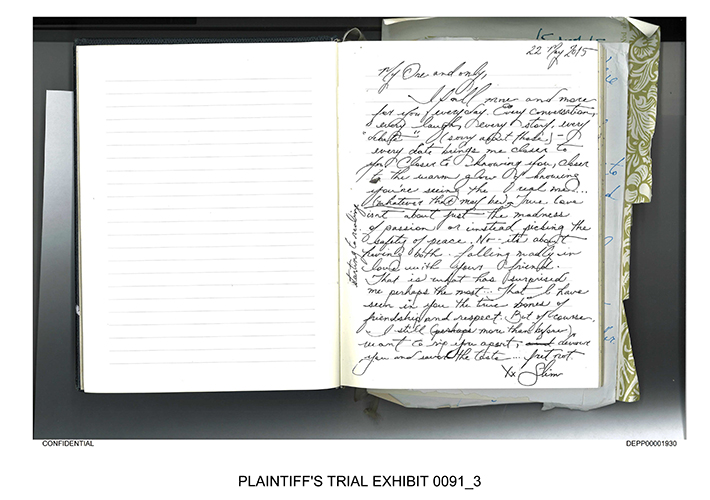 22 May 2015
My One and only,
I fall more and more
for you everyday. Every conversation,
every laugh, every story, every
"debate" (sorry about those) -
every date brings me closer to
you. Closer to knowing you, closer
to the warm glow of knowing
you're seeing the real me...
(whatever that may be). True love
isnt about just the madness
of passion or instead picking the
safety of peace. No - its about
having both. falling madly in
love with your friend.
That is what has surprised
me perhaps the most... That I have
seen in you the true bones of
friendship and respect. But of course,
I still (perhaps more than before)
want to rip you apart, devour
you and savor the taste... fret not
xx Slim
starting to realize
CONFIDENTIAL
DEPP00001930
PLAINTIFF'S TRIAL EXHIBIT 0091_3